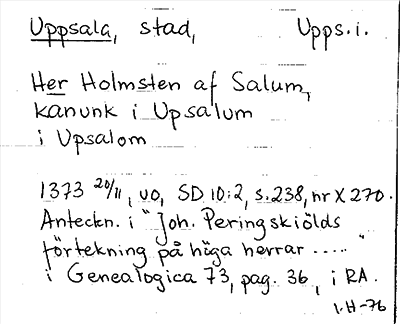 Uppsala, stad, Upps. i.
Her Holmsten af Salum,
kanunk i Upsalum
i Upsalom
1373 20/11, uo, SD 10:2, s. 238, nr X 270.
Anteckn. i "Joh. Peringskiölds
förtekning på höga herrar ....."
i Genealogica 73, pag. 36, i RA.
I.H-76